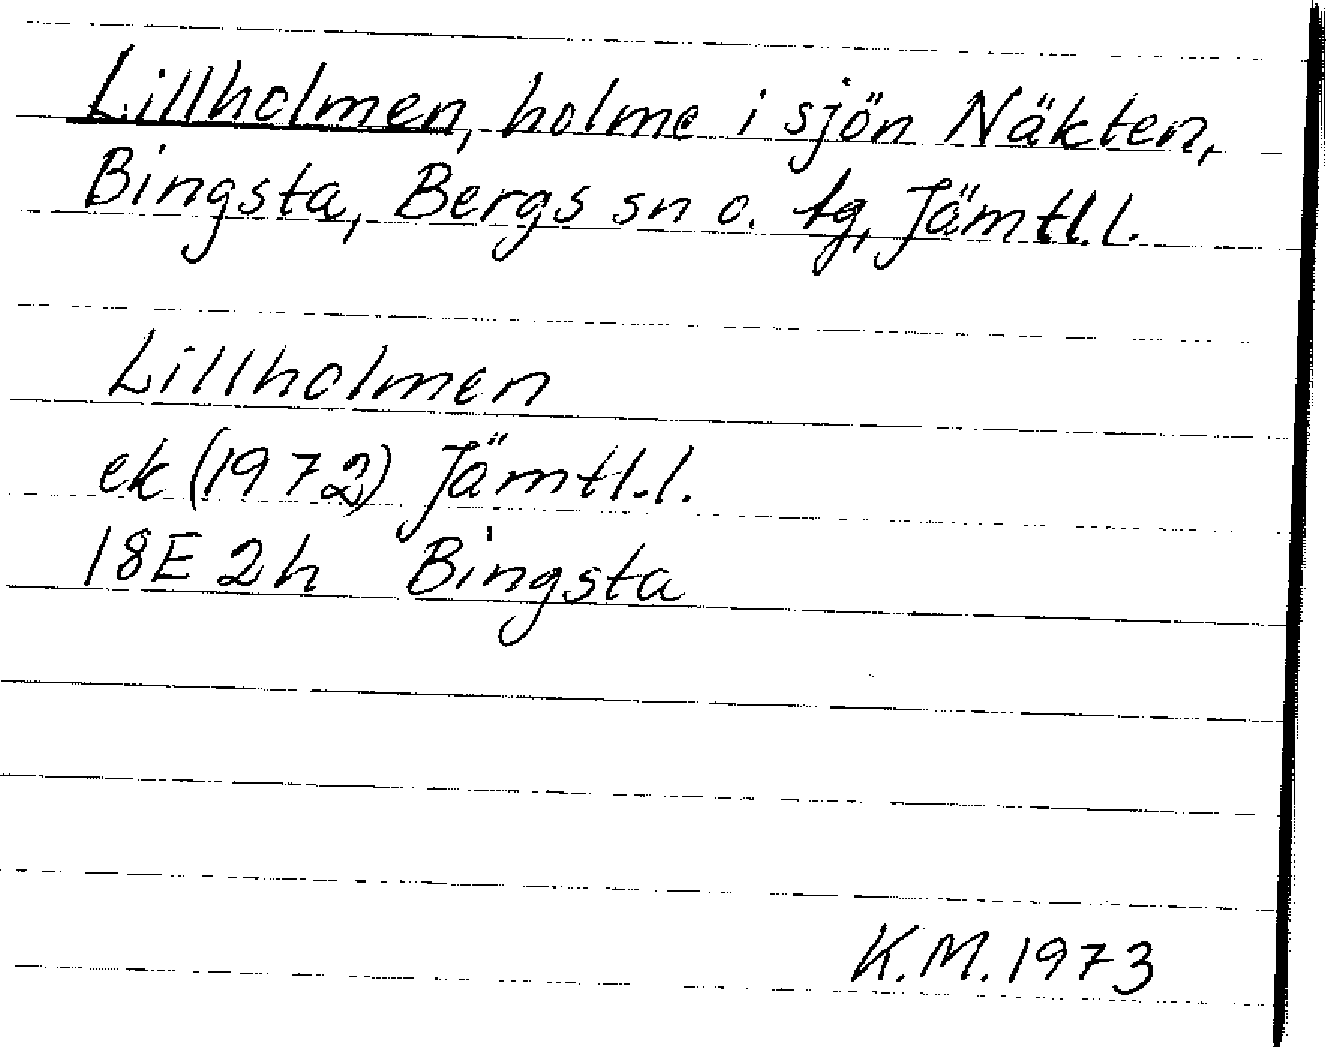 Lillholmen, holme i sjön Näkten,
Bingsta, Bergs sn o. tg, Jämtl.l.
Lillholmen
ek (1972) Jämtl.l.
18E 2h Bingsta
K.M. 1973